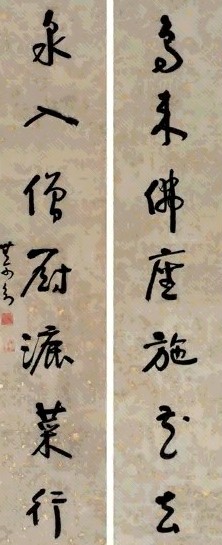 鳥来佛座施花去
泉入僧厨漉菜行